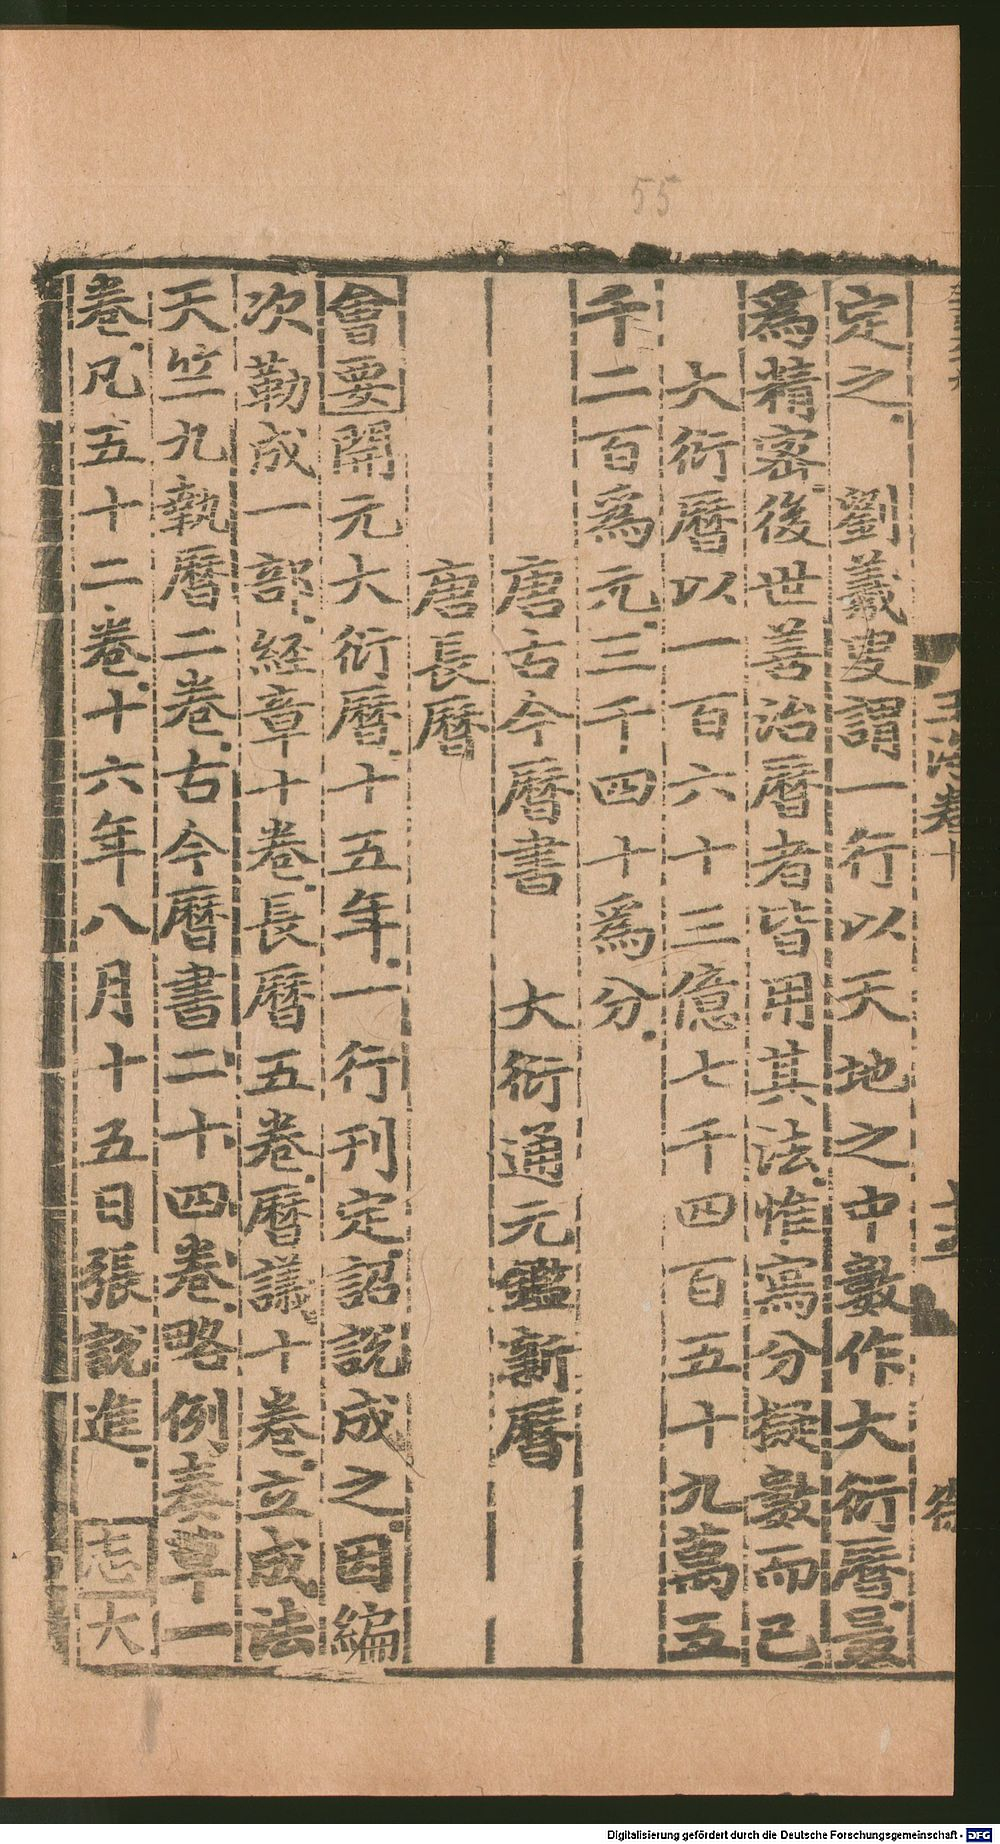 55
玉海卷十
十五
定之劉羲叟謂一行以天地之中數作大衍曆最
爲精密後世善治曆者皆用其法惟寫分擬數而已
大衍曆以一百六十三億七千四百五十九萬五
千二百爲元三千四十爲分
唐古今曆書　大衍通元鑑新曆
唐長曆
會要開元大衍曆十五年一行刊定詔說成之因編
次勒成一部經章十卷長曆五卷曆議十卷立成法
天竺九執曆二卷古今曆書二十四卷略例奏草一
卷凡五十二卷十六年八月十五日張說進　志大
Digitalisierung gefördert durch die Deutsche Forschungsgemeinschaft - DFG